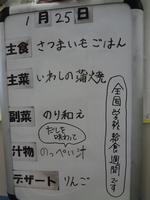 1月25日
主食 さつまいもごはん
主菜 いわしの蒲焼
副菜 のり和え
だしを味わって
汁物 のっぺい汁
デザート りんご
全国学校給食週間です